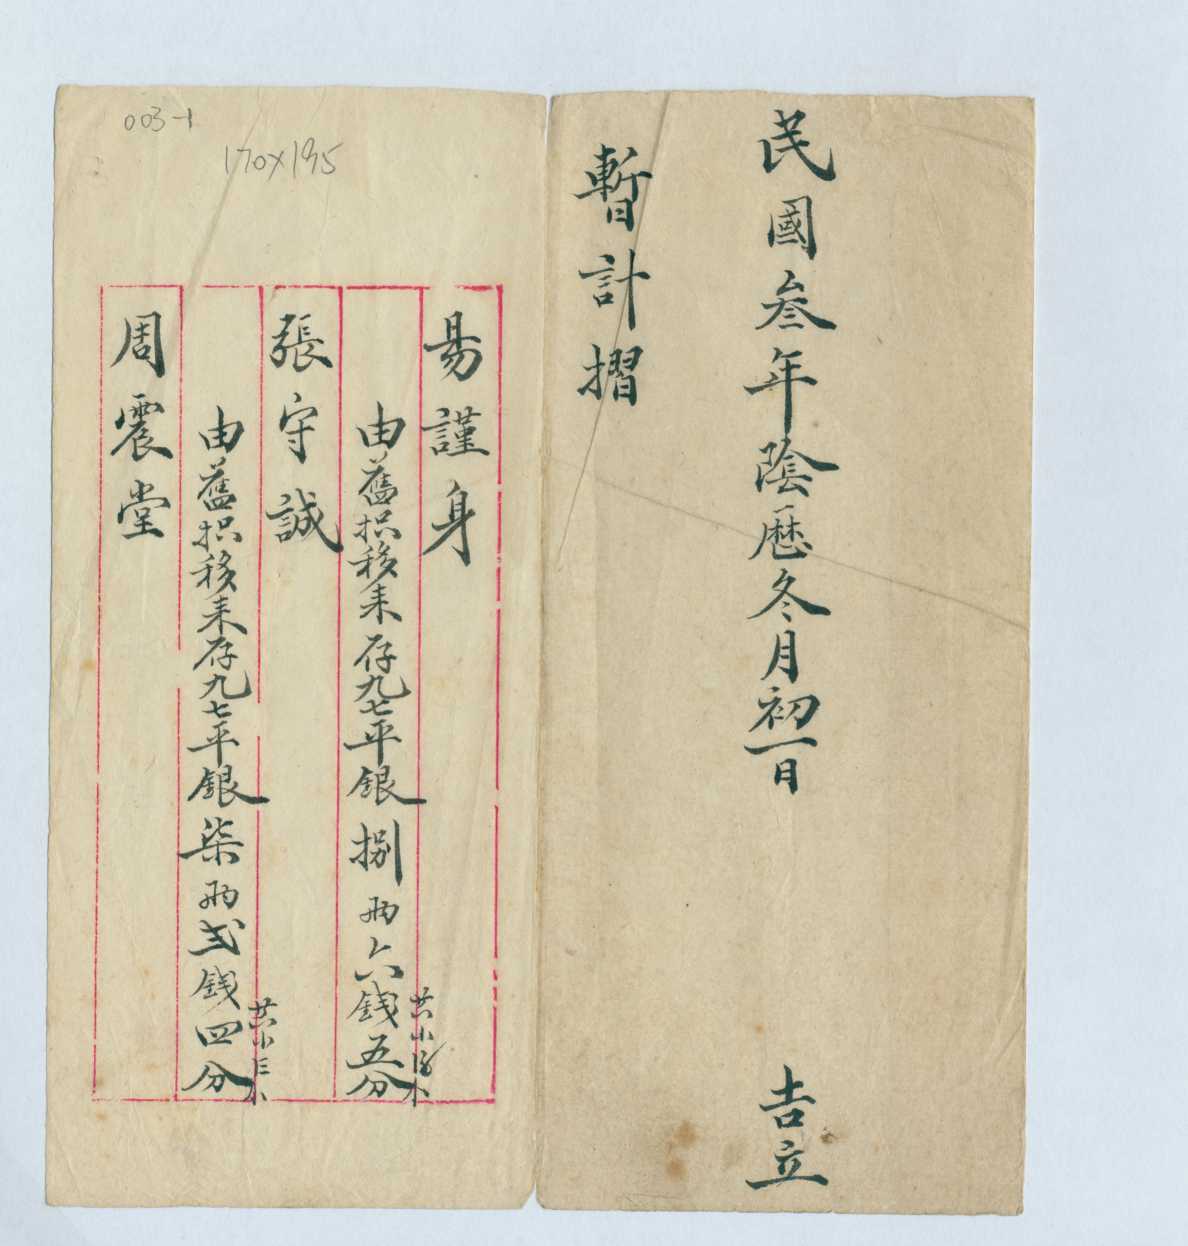 民國叁年陰歷冬月初一日 吉立
暫計摺
003-1
170×195
易謹身
由舊摺移來存九七平銀捌兩六錢五分
張守誠
由舊摺移來存九七平銀柒兩弍錢四分
周震堂